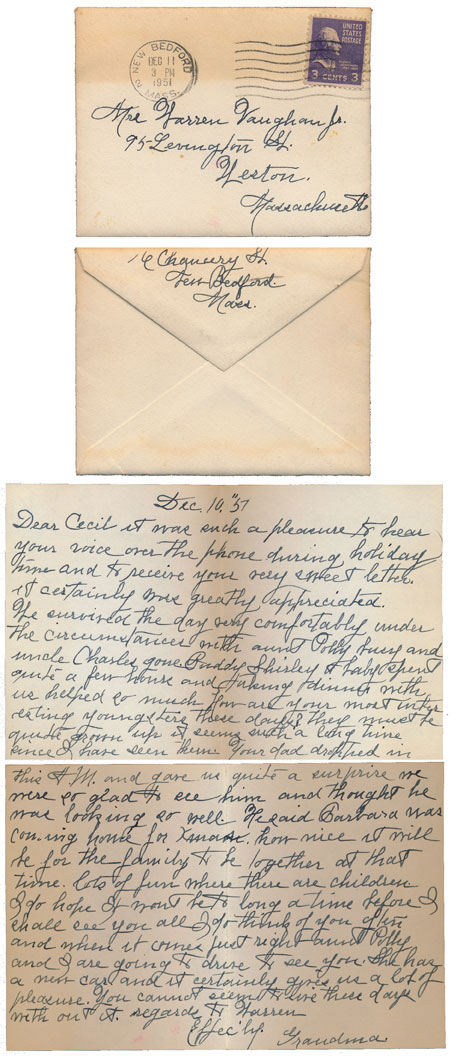 NEW BEDFORD
DEC 11
3 PM
1951
2 MASS.
UNITED
STATES
POSTAGE
3 CENTS 3
Mrs Warren Vaughan Jr.
95 Lexington St.
Weston.
Massachusetts
16 Chancery St
New Bedford.
Mass.
Dec. 10, "51
Dear Cecil it was such a pleasure to hear
your voice over the phone during holiday
time and to receive your very sweet letter.
it certainly was greatly appreciated.
We survived the day very comfortably under
the circumstances with aunt Polly busy and
uncle Charles gone. Buddy Shirley & baby spent
quite a few hours and taking dinner with
us helped so much How are your most inter
esting youngsters these days they must be
quite grown up it seems such a long time
since I have seen them. Your dad dropped in
this A M. and gave us quite a surprize we
were so glad to see him and thought he
was looking so well He said Barbara was
coming home for Xmas. how nice it will
be for the family to be together at that
time. lots of fun where there are children
I do hope it wont be to long a time before I
shall see you all I do think of you often
and when it comes just right aunt Polly
and I are going to drive to see you. She has
a new car and it certainly gives us a lot of
pleasure. You cannot seem to live these days
with out it. regards to Warren
Affec'ly.
Grandma